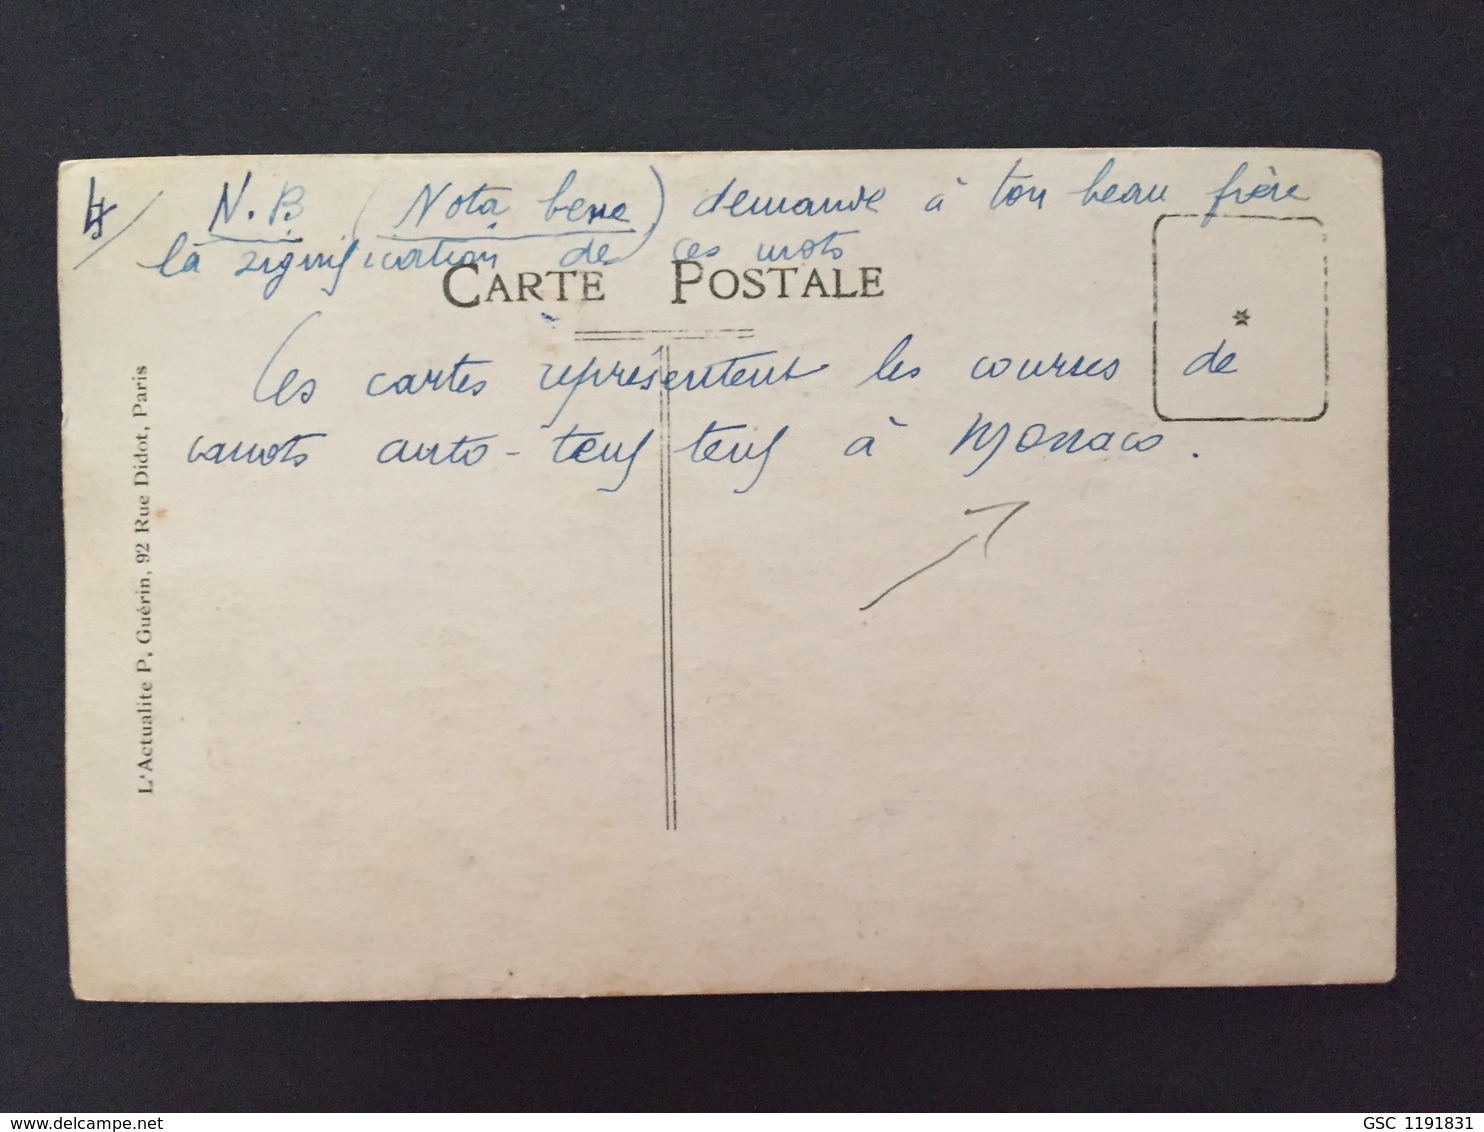 4/ N.B (Nota bene) demande à ton beau frère
la signification de ces mots
CARTE POSTALE
*
Ces cartes représentent les courses de
canots auto-teuf teuf à Monaco.
L'Actualite P. Guérin, 92 Rue Didot, Paris
GSC 1191831